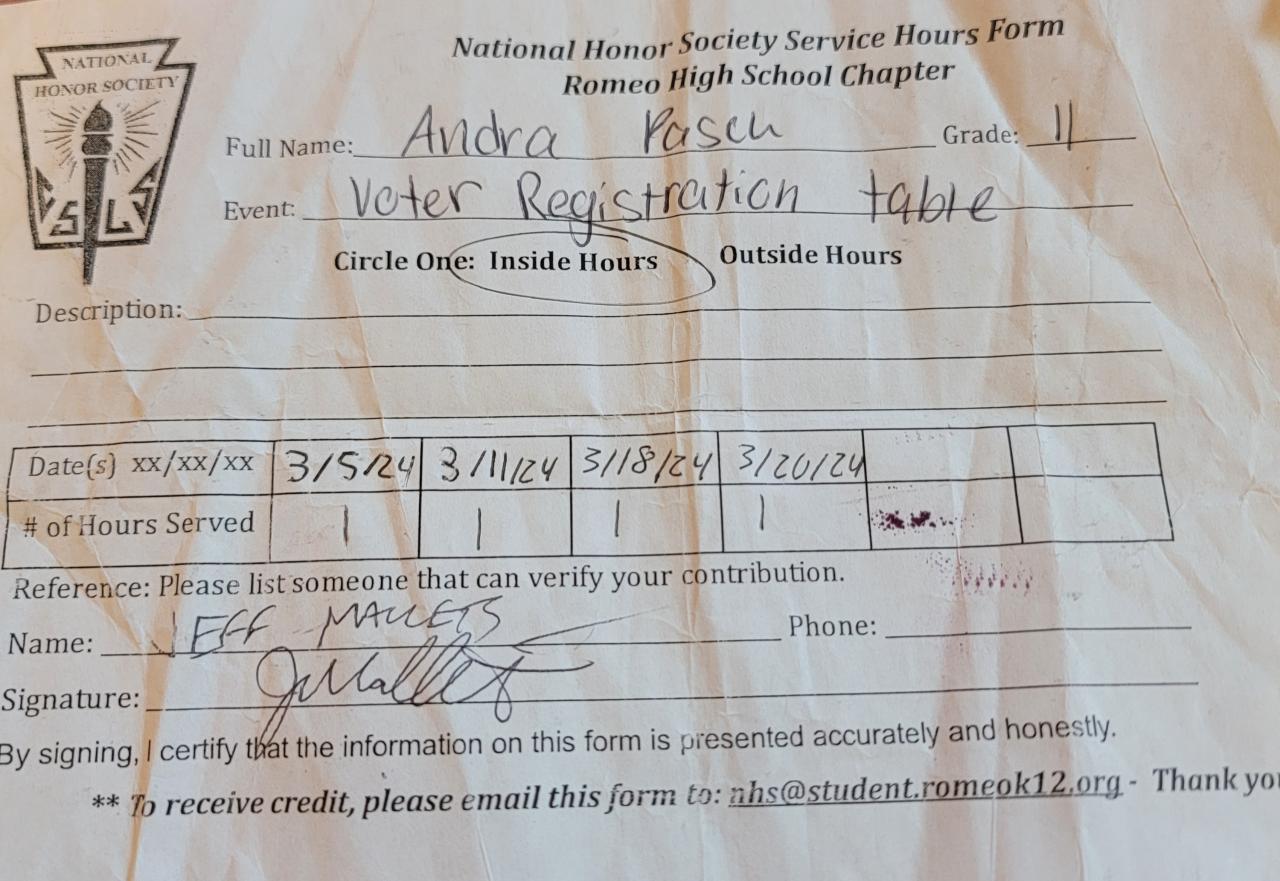 NATIONAL
HONOR SOCIETY
SLCS
National Honor Society Service Hours Form
Romeo High School Chapter
Full Name: Andra Pasch Grade: 11
Event: Voter Registration table
Circle One: Inside Hours Outside Hours
Description:
Date(s) xx/xx/xx 3/5/24 3/11/24 3/18/24 3/20/24
# of Hours Served 1 1 1 1
Reference: Please list someone that can verify your contribution.
Name: JEFF MALLETS Phone:
Signature: J Mallets
By signing, I certify that the information on this form is presented accurately and honestly.
** To receive credit, please email this form to: nhs@student.romeok12.org - Thank you